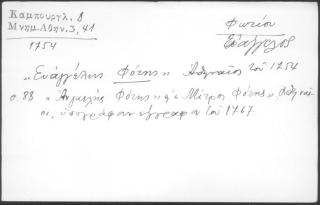 Καμπουρτλ. 8
Μνημ. Αθην. 3, 41
1754
Φωτίου
Ευάγγελος
"Ευαγγέλης Φώτης" Αθηναίος του 1754
σ. 88 "Αγγελής Φώτης" & "Μέτρος Φώτης", Αθηναί-
οι, υπογράφαν έγγραφα του 1767.